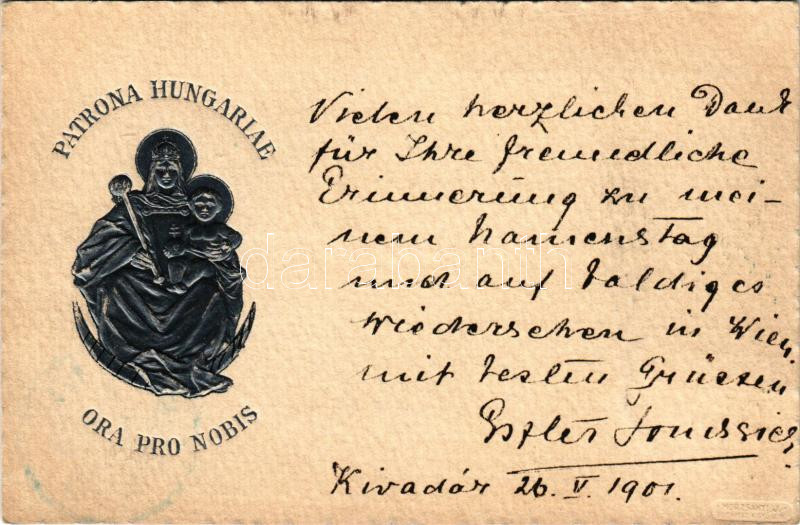 PATRONA HUNGARIAE
ORA PRO NOBIS
Vielen herzlichen Dank
für Ihre freundliche
Erinnerung zu mei-
nem Namenstag
und auf baldiges
Wiedersehen in Wien.
mit besten Grüssen
Eszter
Kivadár 26. V. 1901.
darabanth